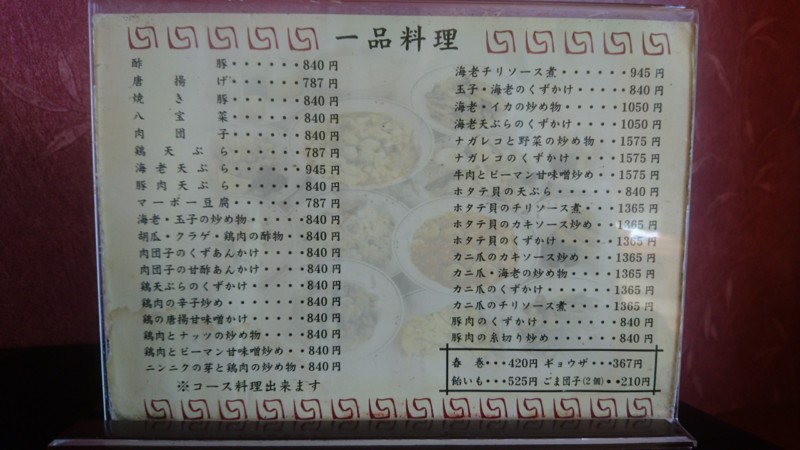 一品料理
酢豚・・・・・・840円
唐揚げ・・・・・・787円
焼き豚・・・・・・840円
八宝菜・・・・・・840円
肉団子・・・・・・840円
鶏天ぷら・・・・・787円
海老天ぷら・・・・・945円
豚肉天ぷら・・・・・840円
マーボー豆腐・・・・・787円
海老・玉子の炒め物・・・・・840円
胡瓜・クラゲ・鶏肉の酢物・・840円
肉団子のくずあんかけ・・・・840円
肉団子の甘酢あんかけ・・・・840円
鶏天ぷらのくずかけ・・・・・840円
鶏肉の辛子炒め・・・・・・・840円
鶏の唐揚甘味噌かけ・・・・・840円
鶏肉とナッツの炒め物・・・・840円
鶏肉とピーマン甘味噌炒め・・840円
ニンニクの芽と鶏肉の炒め物・840円
※コース料理出来ます
海老チリソース煮・・・・・・945円
玉子・海老のくずかけ・・・・840円
海老・イカの炒め物・・・・1050円
海老天ぷらのくずかけ・・・1050円
ナガレコと野菜の炒め物・・1575円
ナガレコのくずかけ・・・・1575円
牛肉とピーマン甘味噌炒め・・1575円
ホタテ貝の天ぷら・・・・・840円
ホタテ貝のチリソース煮・・・1365円
ホタテ貝のカキソース炒め・・1365円
ホタテ貝のくずかけ・・・・・1365円
カニ爪のカキソース炒め・・・1365円
カニ爪・海老の炒め物・・・・1365円
カニ爪のくずかけ・・・・・1365円
カニ爪のチリソース煮・・・・1365円
豚肉のくずかけ・・・・・・840円
豚肉の糸切り炒め・・・・・840円
春巻・・・420円 ギョウザ・・・367円
飴いも・・・525円 ごま団子(2個)・・210円